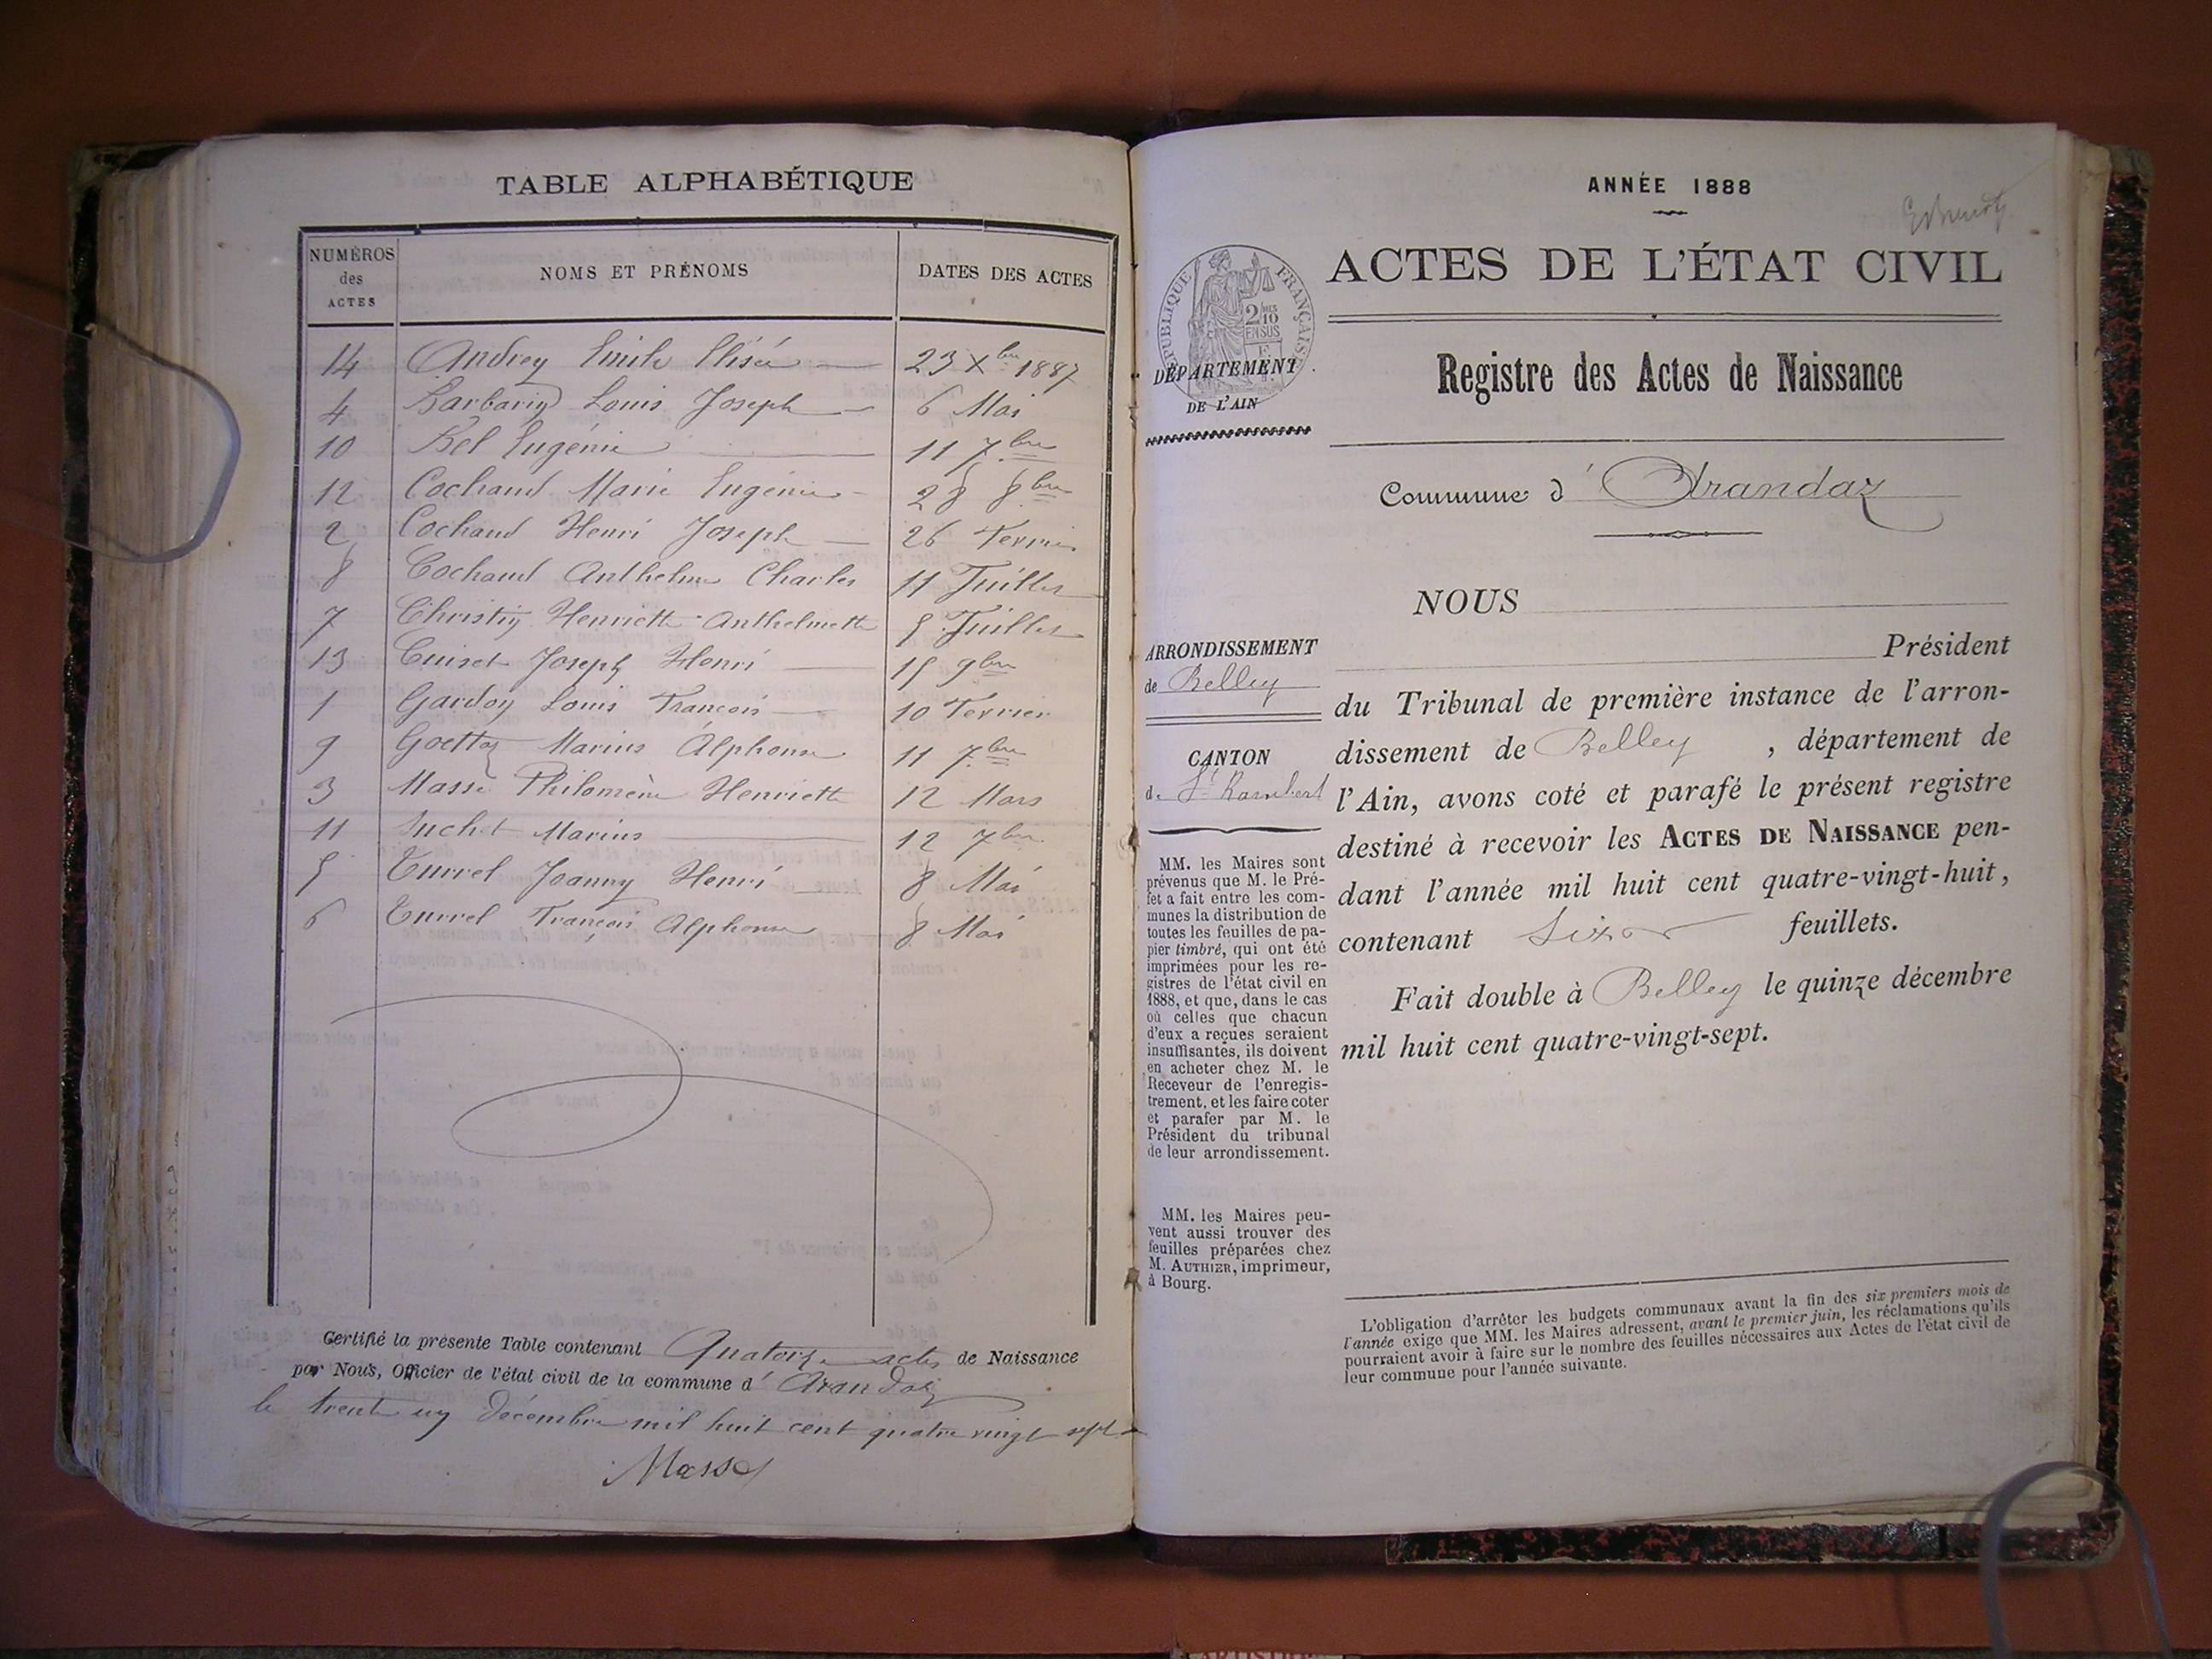 TABLE ALPHABÉTIQUE
NUMÉROS des ACTES NOMS ET PRÉNOMS DATES DES ACTES
14 Andrey Emile Elisée 23 Xbre 1887
4 Barbarin Louis Joseph 6 Mai
10 Bel Eugénie 11 7bre
12 Cochand Marie Eugénie 28 8bre
2 Cochand Henri Joseph 26 Fevrier
8 Cochand Anthelme Charles 11 Juillet
7 Christin Henriette Anthelmette 5 Juillet
13 Cuiset Joseph Henri 15 9bre
1 Gardon Louis François 10 Fevrier
9 Goettaz Marius Alphonse 11 7bre
3 Masse Philomène Henriette 12 Mars
11 Suchet Marius 12 7bre
5 Turrel Joanny Henri 8 Mai
6 Turrel François Alphonse 8 Mai
Certifié la présente Table contenant Quatorze actes de Naissance
par Nous, Officier de l'état civil de la commune d' Arandaz
le trente un décembre mil huit cent quatre vingt sept
Masse
ANNÉE 1888
ACTES DE L'ÉTAT CIVIL
RÉPUBLIQUE FRANÇAISE
2/10 MES
EN SUS
DÉPARTEMENT
DE L'AIN
Registre des Actes de Naissance
Commune d' Arandaz
NOUS
Président
du Tribunal de première instance de l'arron-
dissement de Belley, département de
l'Ain, avons coté et parafé le présent registre
destiné à recevoir les ACTES DE NAISSANCE pen-
dant l'année mil huit cent quatre-vingt-huit,
contenant Six feuillets.
Fait double à Belley le quinze décembre
mil huit cent quatre-vingt-sept.
ARRONDISSEMENT
de Belley
CANTON
de St Rambert
MM. les Maires sont
prévenus que M. le Pré-
fet a fait entre les com-
munes la distribution de
toutes les feuilles de pa-
pier timbré, qui ont été
imprimées pour les re-
gistres de l'état civil en
1888, et que, dans le cas
où celles que chacun
d'eux a reçues seraient
insuffisantes, ils doivent
en acheter chez M. le
Receveur de l'enregis-
trement, et les faire coter
et parafer par M. le
Président du tribunal
de leur arrondissement.
MM. les Maires peu-
vent aussi trouver des
feuilles préparées chez
M. AUTHIER, imprimeur,
à Bourg.
L'obligation d'arrêter les budgets communaux avant la fin des six premiers mois de
l'année exige que MM. les Maires adressent, avant le premier juin, les réclamations qu'ils
pourraient avoir à faire sur le nombre des feuilles nécessaires aux Actes de l'état civil de
leur commune pour l'année suivante.